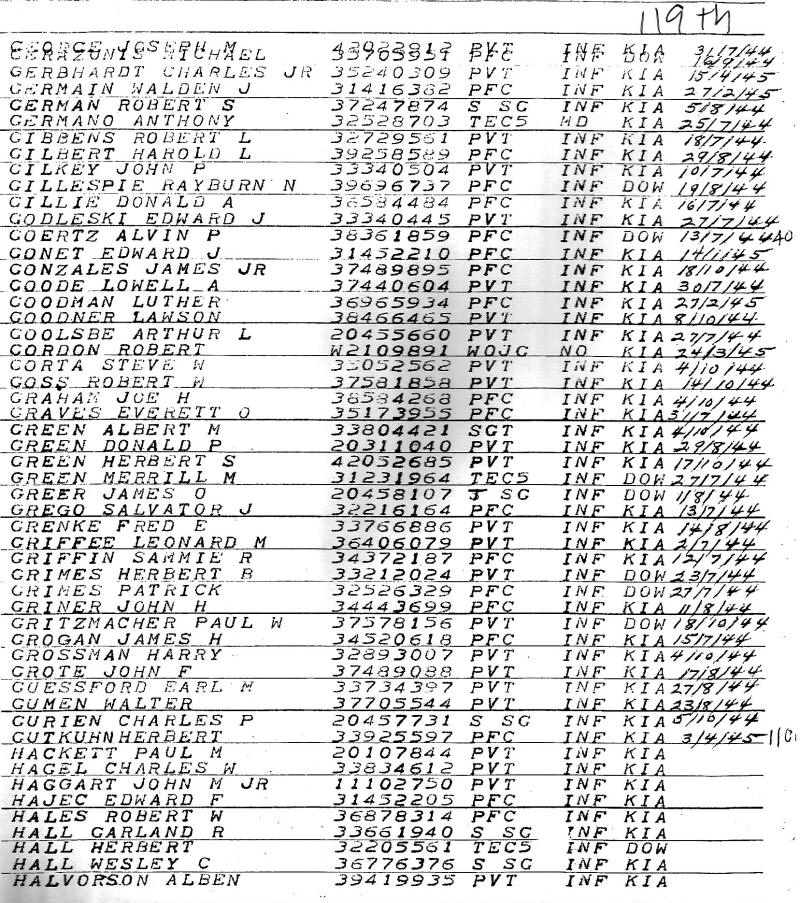 119th
GEORGE JOSEPH M 42922812 PVT INF KIA 31/7/44
GERAZUNIS MICHAEL PFC INF DOW 16/9/44
GERBHARDT CHARLES JR 35240309 PVT INF KIA 15/4/45
GERMAIN WALDEN J 31416382 PFC INF KIA 27/2/45
GERMAN ROBERT S 37247874 S SG INF KIA 5/8/44
GERMANO ANTHONY 32528703 TEC5 MD KIA 25/7/44
GIBBENS ROBERT L 32729561 PVT INF KIA 18/7/44
GILBERT HAROLD L 39258589 PFC INF KIA 29/8/44
GILKEY JOHN P 33340504 PVT INF KIA 10/7/44
GILLESPIE RAYBURN N 39696737 PFC INF DOW 19/8/44
GILLIE DONALD A 36584484 PFC INF KIA 16/7/44
GODLESKI EDWARD J 33340445 PVT INF KIA 27/7/44
GOERTZ ALVIN P 38361859 PFC INF DOW 13/7/44
GONET EDWARD J 31452210 PFC INF KIA 14/1/45
GONZALES JAMES JR 37489895 PFC INF KIA 18/10/44
GOODE LOWELL A 37440604 PVT INF KIA 30/7/44
GOODMAN LUTHER 36965934 PFC INF KIA 27/2/45
GOODNER LAWSON 38466465 PVT INF KIA 8/10/44
GOOLSBE ARTHUR L 20455660 PVT INF KIA 27/7/44
GORDON ROBERT W2109891 WOJG NO KIA 24/3/45
GORTA STEVE W 35052562 PVT INF KIA 4/10/44
GOSS ROBERT W 37581858 PVT INF KIA 14/10/44
GRAHAM JOE H 38584268 PFC INF KIA 4/10/44
GRAVES EVERETT O 35173955 PFC INF KIA 31/7/44
GREEN ALBERT M 33804421 SGT INF KIA 4/10/44
GREEN DONALD P 20311040 PVT INF KIA 29/8/44
GREEN HERBERT S 42052685 PVT INF KIA 17/10/44
GREEN MERRILL M 31231964 TEC5 INF DOW 27/7/44
GREER JAMES O 20458107 T SG INF DOW 1/8/44
GREGO SALVATOR J 32216164 PFC INF KIA 13/7/44
GRENKE FRED E 33766886 PVT INF KIA 14/8/44
GRIFFEE LEONARD M 36406079 PVT INF KIA 2/7/44
GRIFFIN SAMMIE R 34372187 PFC INF KIA 12/7/44
GRIMES HERBERT B 33212024 PVT INF DOW 23/7/44
GRIMES PATRICK 32526329 PFC INF DOW 27/7/44
GRINER JOHN H 34443699 PFC INF KIA 11/8/44
GRITZMACHER PAUL W 37578156 PVT INF DOW 18/10/44
GROGAN JAMES H 34520618 PFC INF KIA 15/7/44
GROSSMAN HARRY 32893007 PVT INF KIA 4/10/44
GROTE JOHN F 37489088 PVT INF KIA 17/8/44
GUESSFORD EARL M 33734397 PVT INF KIA 27/8/44
GUMEN WALTER 37705544 PVT INF KIA 23/8/44
GURIEN CHARLES P 20457731 S SG INF KIA 5/10/44
GUTKUHNHERBERT 33925597 PFC INF KIA 3/4/45
HACKETT PAUL M 20107844 PVT INF KIA
HAGEL CHARLES W 33834612 PVT INF KIA
HAGGART JOHN M JR 11102750 PVT INF KIA
HAJEC EDWARD F 31452205 PFC INF KIA
HALES ROBERT W 36878314 PFC INF KIA
HALL GARLAND R 33661940 S SG INF KIA
HALL HERBERT 32205561 TEC5 INF DOW
HALL WESLEY C 36776376 S SG INF KIA
HALVORSON ALBEN 39419935 PVT INF KIA